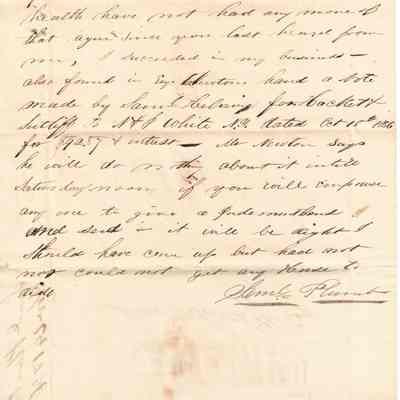 health have not had any more of
that ague since you last heard from
me, I succeeded in my business -
also found in Esqr Newtons hand a Note
made by Saml for Hackett &
Sutliff to N & J White N.Y. dated Oct 10th 1836
for & intrest - Mr Newton says
he will do nothing about it untill
Saturday noon if you will empower
any one to give a
and send it will be right I
should have come up but had not
nor could not get any Horse to
ride
Plumb